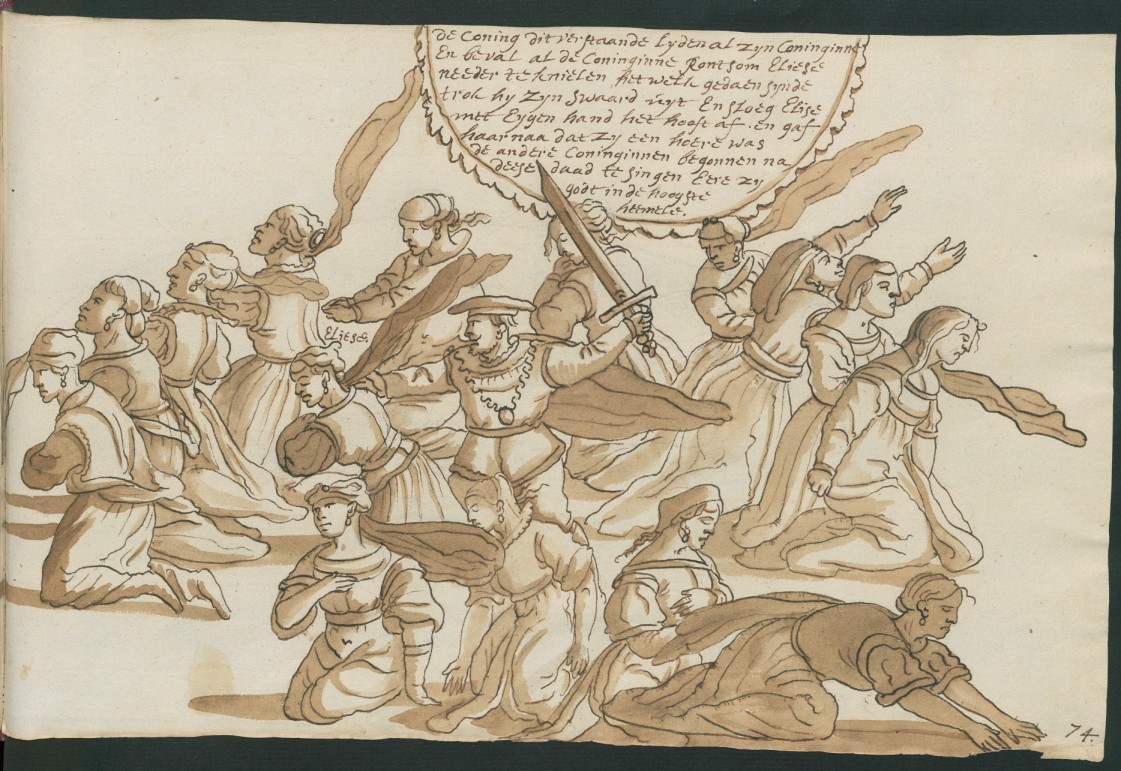 de Coning dit verstaande lyden al zyn Coninginne
En beval al de Coninginne Rontsom Eliese
needer te knielen het welk gedaen synde
trok hy zyn swaard uyt En sloeg Elise
met Eygen hand het hooft af. en gaf
haar naa dat zy een hoere was
de andere Coninginnen begonnen na
deese daad te singen Eere zy
godt in de hoogste
heemele.
Eliese.
74.